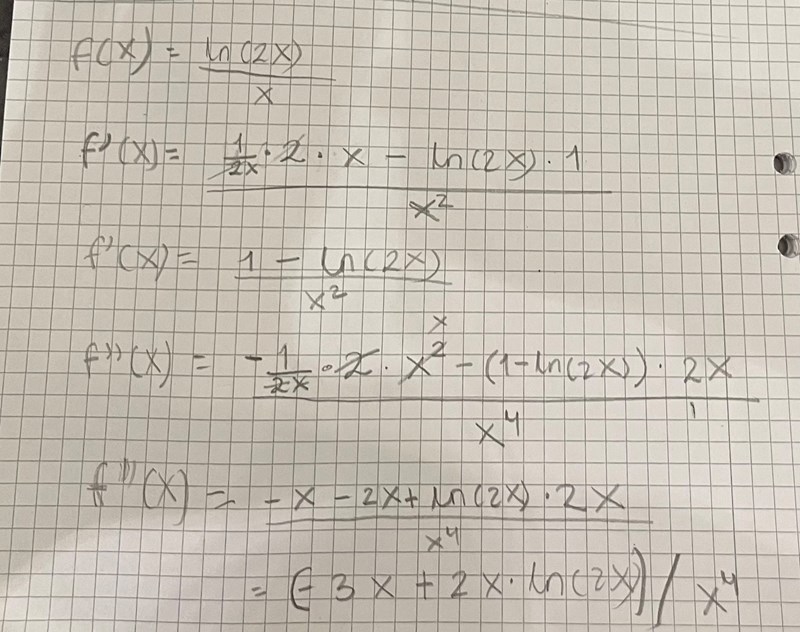 f(x) = ln(2x) / x
f'(x) = (1/2x · 2 · x - ln(2x) · 1) / x²
f'(x) = (1 - ln(2x)) / x²
f''(x) = (-1/2x · 2 · x² x - (1-ln(2x)) · 2x) / x⁴
f'''(x) = (-x - 2x + ln(2x) · 2x) / x⁴
= (-3x + 2x · ln(2x)) / x⁴